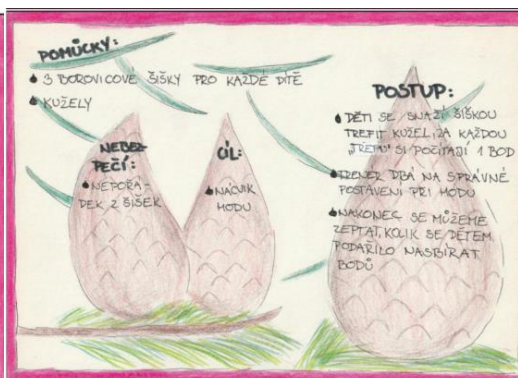 POMŮCKY:
3 BOROVICOVÉ ŠIŠKY PRO KAŽDÉ DÍTĚ
KUŽELY
NEBEZ-
PEČÍ:
NEPOŘÁ-
DEK Z ŠIŠEK
CÍL:
NÁCVIK
HODU
POSTUP:
DĚTI SE SNAŽÍ ŠIŠKOU
TREFIT KUŽEL, ZA KAŽDOU
„TREFU" SI POČÍTAJÍ 1 BOD
TRENER DBÁ NA SPRÁVNÉ
POSTAVENÍ PŘI HODU
NAKONEC SE MŮŽEME
ZEPTAT, KOLIK SE DĚTEM
PODAŘILO NASBÍRAT
BODŮ